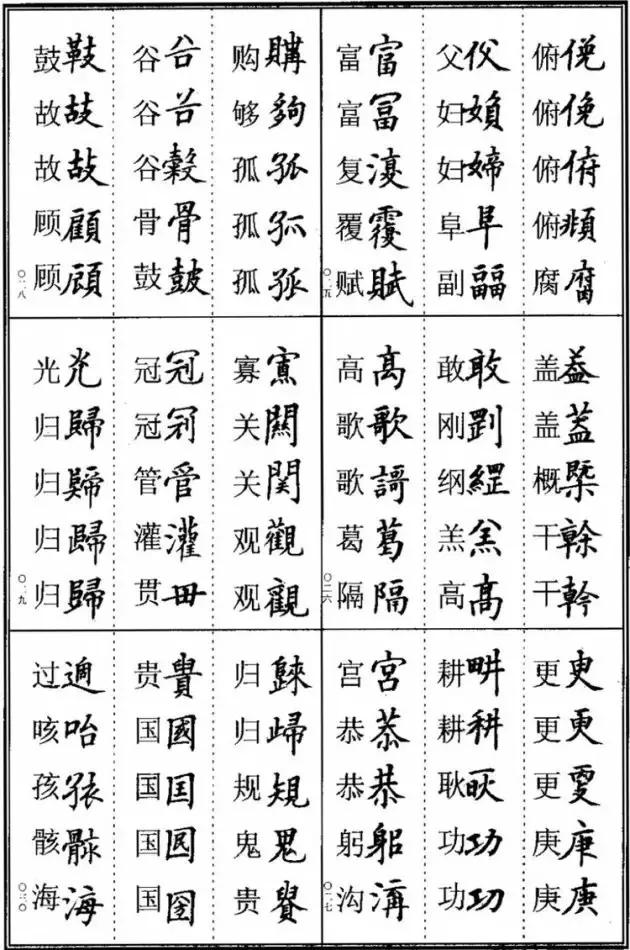 俯俛 俯俛 俯俯 俯頫 腐腐
父 妇媍 妇婦 阜阜 副
富富 富冨 复 覆覆 赋賦
〇二五
盖葢 盖蓋 概槩 干榦 干幹
敢敢 刚 纲 羔羔 高髙
高高 歌歌 歌謌 葛葛 隔隔
〇二六
更 更更 更 庚庚 庚庚
耕畊 耕耕 耿耿 功功 功㓛
宫宫 恭恭 恭恭 躬躬 沟溝
〇二七
购購 够夠 孤孤 孤孤 孤孤
谷谷 谷 谷穀 骨骨 鼓皷
鼓 故故 故故 顾顧 顾顧
〇二八
寡 关關 关関 观觀 观觀
冠冠 冠 管管 灌灌 贯毌
光光 归歸 归 归歸 归歸
〇二九
归 归 规規 鬼鬼 贵
贵貴 国國 国囯 国 国圀
过 咳 孩孩 骸骸 海海
〇三〇